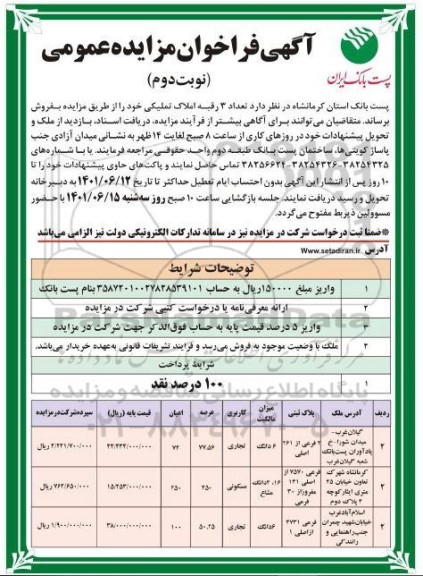 آگهی فراخوان مزایده عمومی
(نوبت دوم)
پست بانک ایران
پست بانک استان کرمانشاه در نظر دارد تعداد ۳ رقبه املاک تملیکی خود را از طریق مزایده بفروش
برساند. متقاضیان می‌توانند برای آگاهی بیشتر از فرآیند مزایده، دریافت اسناد، بازدید از ملک و
تحویل پیشنهادات خود در روزهای کاری از ساعت ۸ صبح لغایت ۱۴ ظهر به نشانی میدان آزادی جنب
پاساژ کویتی‌ها، ساختمان پست بانک طبقه دوم واحد حقوقی مراجعه فرمایند. یا با شماره‌های
۳۸۲۵۴۳۲۵-۳۸۲۵۴۳۲۶-۳۸۲۵۶۶۲۴ تماس حاصل نمایند و پاکت‌های حاوی پیشنهادات خود را تا
۱۰ روز پس از انتشار این آگهی بدون احتساب ایام تعطیل حداکثر تا تاریخ ۱۴۰۱/۰۶/۱۲ به دبیرخانه
تحویل و رسید دریافت نمایند. جلسه بازگشایی ساعت ۱۰ صبح روز سه‌شنبه ۱۴۰۱/۰۶/۱۵ با حضور
مسوولین ذیربط مفتوح می‌گردد.
※ضمنا ثبت درخواست شرکت در مزایده نیز در سامانه تدارکات الکترونیکی دولت نیز الزامی می‌باشد
آدرس www.setadiran.ir
توضیحات شرایط
۱ واریز مبلغ ۱۵۰۰۰۰۰ ریال به حساب بنام پست بانک
۲ ارائه معرفی‌نامه یا درخواست کتبی شرکت در مزایده
۳ واریز ۵ درصد قیمت پایه به حساب فوق‌الذکر جهت شرکت در مزایده
۴ ملک با وضعیت موجود به فروش می‌رسد و فرایند تشریفات قانونی به‌عهده خریدار می‌باشد.
شرایط پرداخت
۱ ۱۰۰ درصد نقد
ردیف آدرس ملک پلاک ثبتی میزان مالکیت کاربری عرصه اعیان قیمت پایه (ریال) سپرده شرکت در مزایده
۲ گیلان‌غرب- میدان شورا- خ پادآوران پست‌بانک شعبه گیلان‌غرب ۲ فرعی از ۲۶۱ اصلی ۶ دانگ تجاری ۷۷.۵۶ ۷۲ ریال
۳ کرمانشاه شهرک تعاون خیابان ۲۵ متری ایثار کوچه ۴ پلاک دوم فرعی ۷۵۷۰ از اصلی ۱۴۱ مفروز از ۳۰ فرعی مشاع مسکونی ۲۵۰ ۲۵۰ ۱۵/۲۵۳/۰۰۰/۰۰۰ ۷۶۲/۶۵۰/۰۰۰ ریال
۲ اسلام‌آباد‌غرب خیابان شهید چمران جنب راهنمایی و رانندگی فرعی ۴۷۳۱ از اصلی ۱ ۶ دانگ تجاری ۵۰.۲۵ ۱۰۰ ۳۸/۰۰۰/۰۰۰/۰۰۰ ۱/۹۰۰/۰۰۰/۰۰۰ ریال